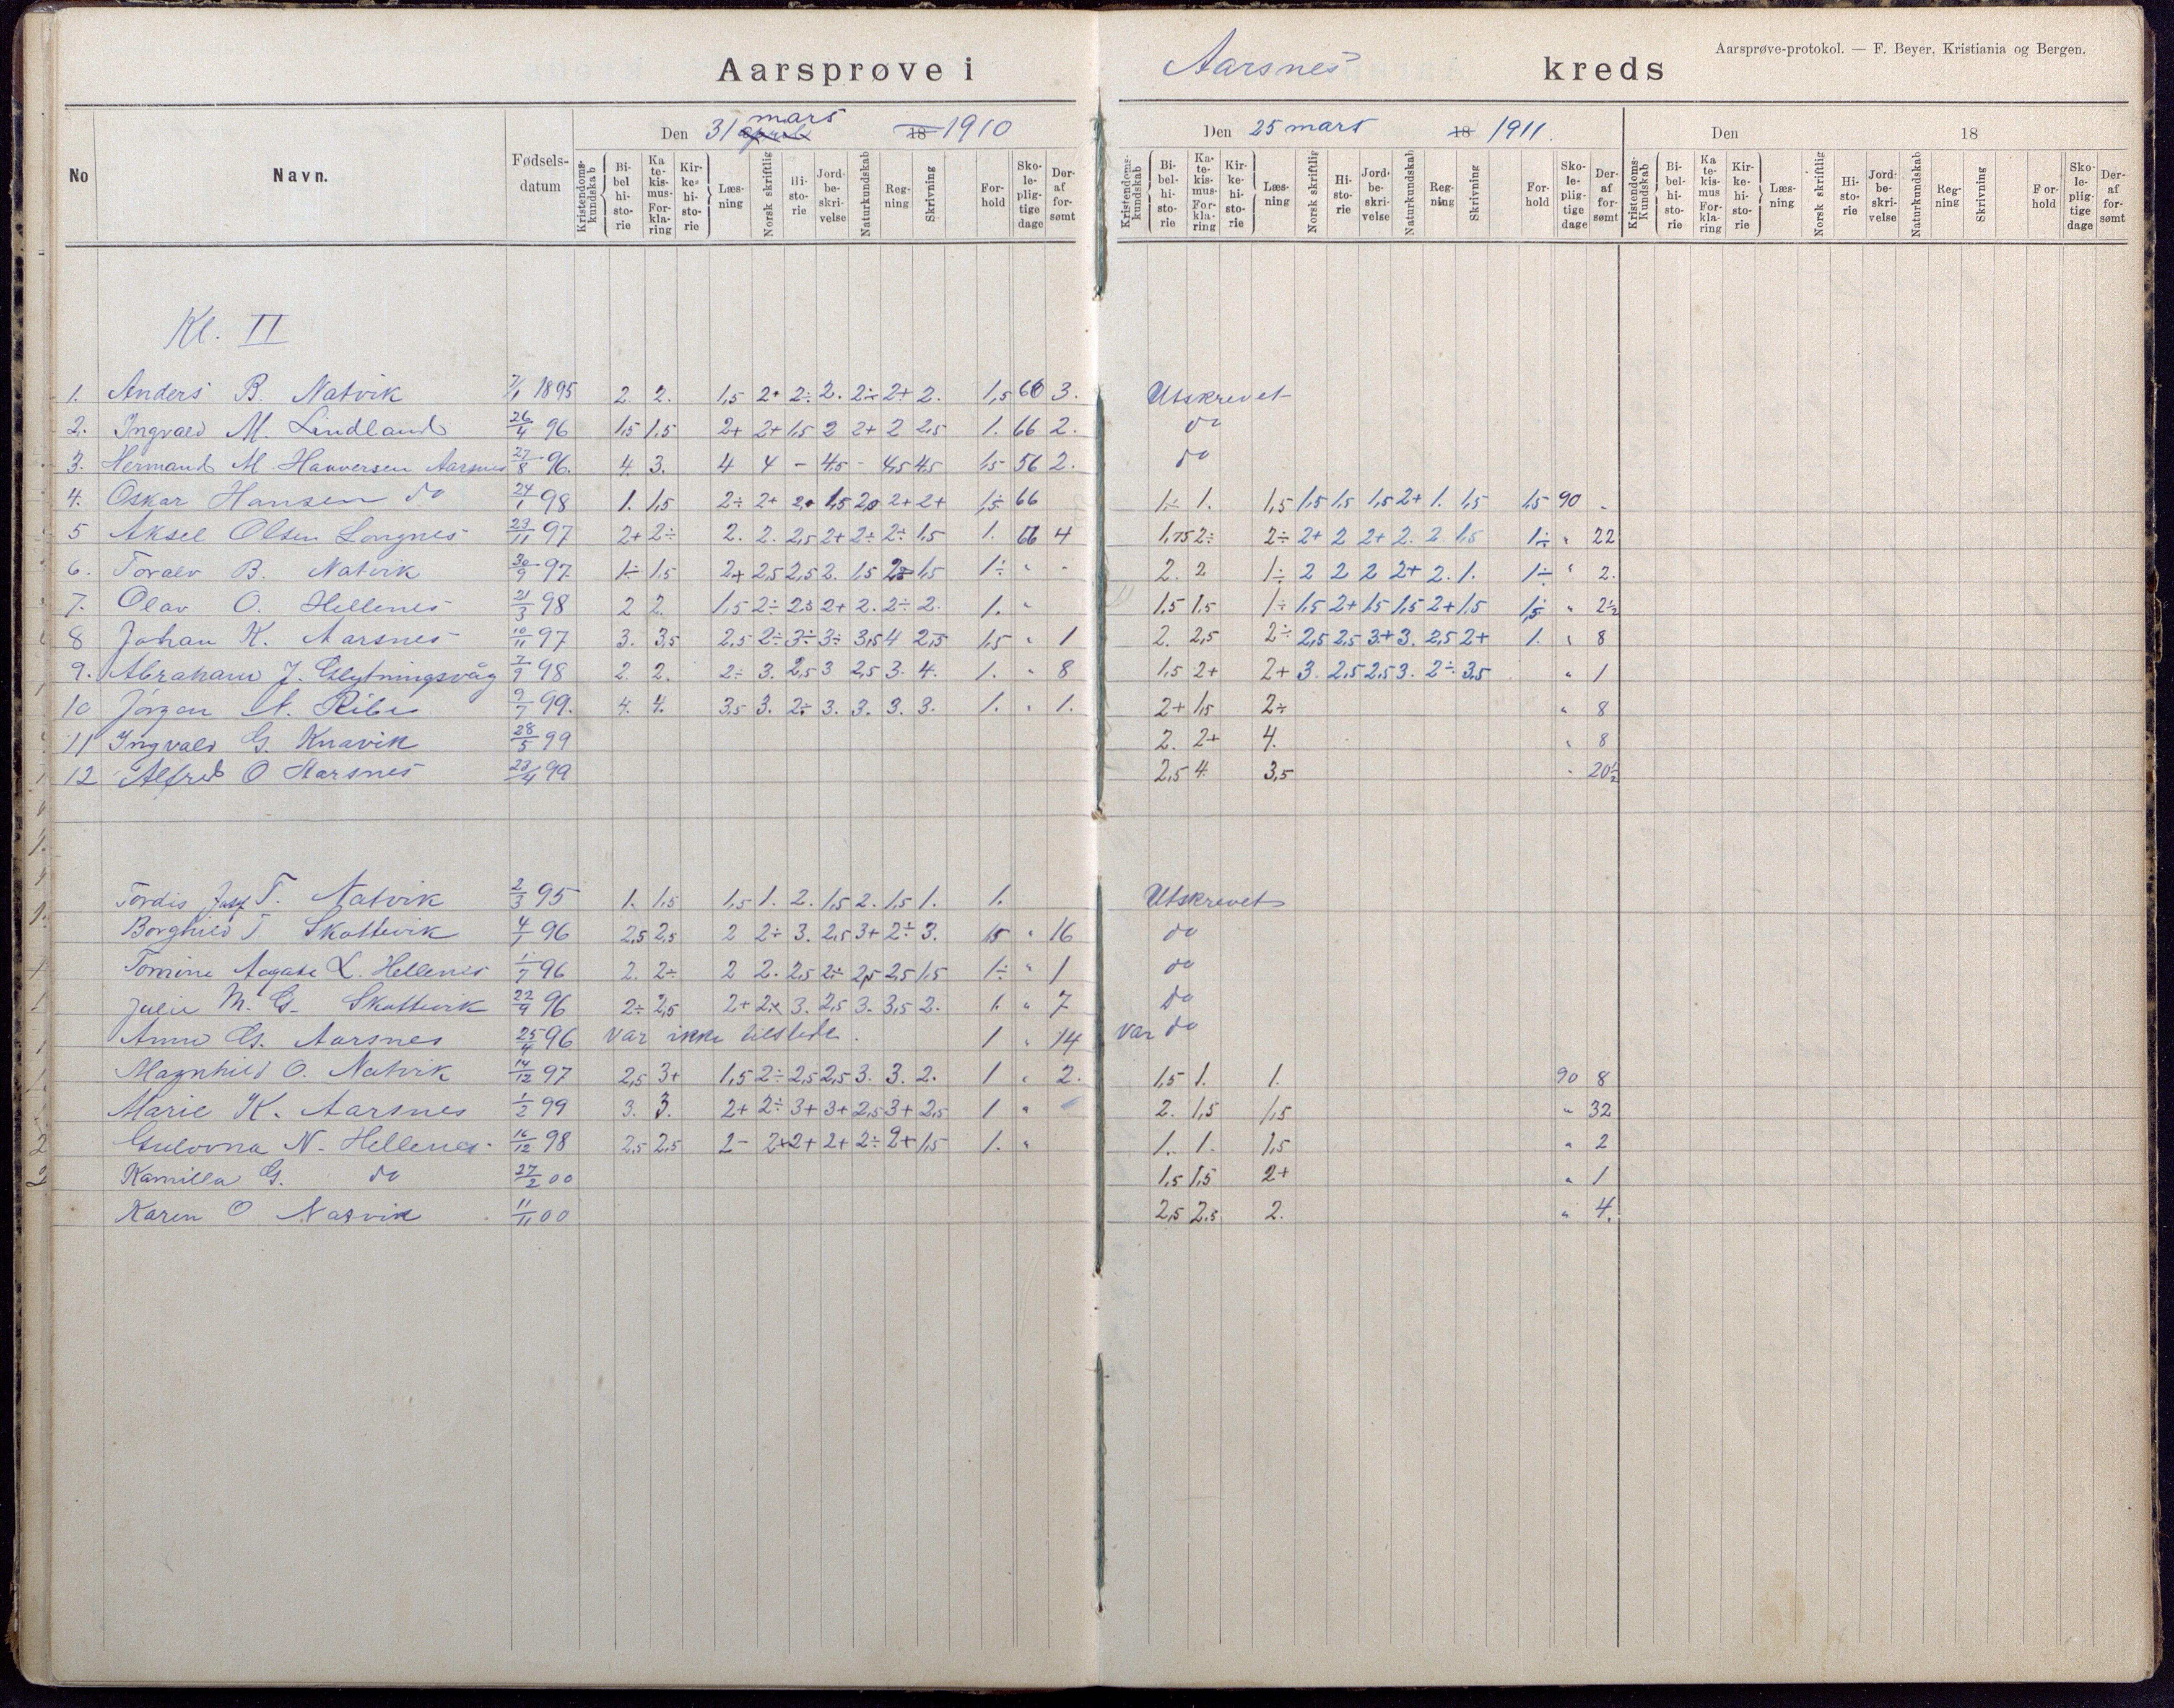 Aarsprøve-protokol. — F. Beyer, Kristiania og Bergen.
Aarsprøve i Aarsnes kreds
No Navn. Fødsels-datum Den 31 mars april 18 1910 Den 25 mars 18 1911. Den 18
Kristendoms-kundskab Bi-bel hi-sto-rie Ka te-kis-mus- For-kla-ring Kir-ke-hi-sto-rie Læs-ning Norsk skriftlig Hi-sto-rie Jord-be-skri-velse Naturkundskab Reg-ning Skrivning For-hold Sko-le-plig-tige dage Der-af for-sømt
Kristendoms-kundskab Bi-bel-hi-sto-rie Ka-te-kis-mus- For-kla-ring Kir-ke-hi-sto-rie Læs-ning Norsk skriftlig Hi-sto-rie Jord-be-skri-velse Naturkundskab Reg-ning Skrivning For-hold Sko-le-plig-tige dage Der-af for-sømt
Kristendoms-Kundskab Bi-bel-hi-sto-rie Ka te-kis-mus For-kla-ring Kir-ke-hi-sto-rie Læs-ning Norsk skriftlig Hi-sto-rie Jord-be-skri-velse Naturkundskab Reg-ning Skrivning For-hold Sko-le-plig-tige dage Der-af for-sømt
Kl. II
1. Anders B. Natvik 7/1 1895 2. 2. 1,5 2+ 2÷ 2. 2÷ 2+ 2. 1,5 66 3. Utskrevet
2. Ingvald M. Lindland 26/4 96 1,5 1,5 2+ 2+ 1,5 2 2+ 2 2,5 1. 66 2. do
3. Hermand M. Hanversen Aarsnes 27/8 96. 4. 3. 4 4 - 4,5 - 4,5 4,5 1,5 56 2. do
4. Oskar Hansen do 24/1 98 1. 1,5 2÷ 2+ 2+ 1,5 2,0 2+ 2+ 1,5 66 1÷ 1. 1,5 1,5 1,5 1,5 2+ 1. 1,5 1,5 90 -
5 Aksel Olsen Longnes 23/11 97 2+ 2÷ 2. 2. 2,5 2+ 2÷ 2÷ 1,5 1. 66 4 1,75 2÷ 2÷ 2+ 2 2+ 2. 2. 1,5 1÷ " 22
6. Toralv B. Natvik 30/9 97 1÷ 1,5 2+ 2,5 2,5 2. 1,5 2÷ 1,5 1÷ " - 2. 2 1÷ 2 2 2 2+ 2. 1. 1÷ " 2.
7. Olav O. Hellenes 21/3 98 2 2. 1,5 2÷ 2,5 2+ 2. 2÷ 2. 1. " 1,5 1,5 1÷ 1,5 2+ 1,5 1,5 2+ 1,5 1,5 " 2½
8 Johan K. Aarsnes 10/11 97 3. 3,5 2,5 2÷ 3÷ 3÷ 3,5 4 2,5 1,5 " 1 2. 2,5 2÷ 2,5 2,5 3+ 3. 2,5 2+ 1. " 8
9. Abraham J. 7/9 98 2. 2. 2÷ 3. 2,5 3 2,5 3. 4. 1. " 8 1,5 2+ 2+ 3. 2,5 2,5 3. 2÷ 3,5 " 1
10 Jörgen N. Ribe 9/7 99. 4. 4. 3,5 3. 2÷ 3. 3. 3. 3. 1. " 1. 2+ 1,5 2÷ " 8
11 Ingvald G. Knavik 28/5 99 2. 2+ 4. " 8
12 Alfred O Aarsnes 23/4 99 2,5 4. 3,5 " 20½
Tordis T. Natvik 2/3 95 1. 1,5 1,5 1. 2. 1,5 2. 1,5 1. 1. Utskrevet
Borghild T Skottevik 4/1 96 2,5 2,5 2 2÷ 3. 2,5 3+ 2÷ 3. 1,5 " 16 do
Tomine Aagate L. Hellenes 1/7 96 2. 2÷ 2 2. 2,5 2÷ 2,5 2,5 1,5 1÷ " 1 do
Julie M. G. Skottevik 22/9 96 2÷ 2,5 2+ 2+ 3. 2,5 3. 3,5 2. 1. " 7 do
Anne G. Aarsnes 25/4 96 var ikke tilstede. 1 " 14 var do
Magnhild O. Natvik 14/12 97 2,5 3+ 1,5 2÷ 2,5 2,5 3. 3. 2. 1 " 2. 1,5 1. 1. 90 8
Marie K. Aarsnes 1/2 99 3. 3. 2+ 2÷ 3+ 3+ 2,5 3+ 2,5 1 " 2. 1,5 1,5 " 32
Gulovna N. Hellenes 16/12 98 2,5 2,5 2- 2+ 2+ 2+ 2÷ 2+ 1,5 1. " 1. 1. 1,5 " 2
Kamilla G. do 27/2 00 1,5 1,5 2+ " 1
Karen O Natvik 11/11 00 2,5 2,5 2. " 4.